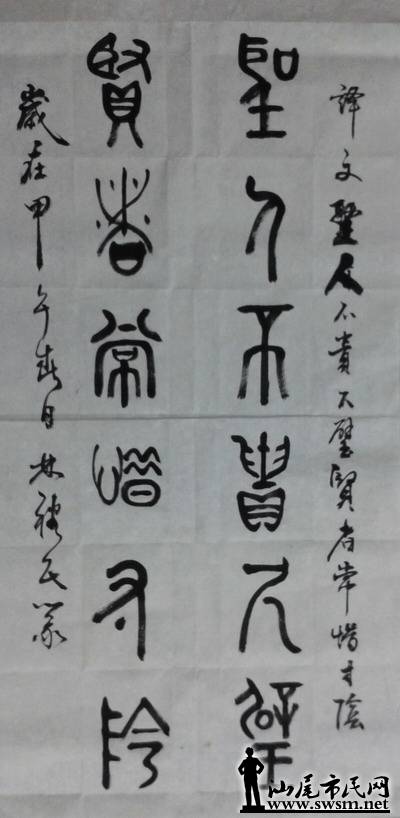 譯文聖人不貴尺璧賢者常惜寸陰
聖人不貴尺璧
賢者常惜寸陰
歲在甲午春日林民篆
汕尾市民网
www.swsm.net